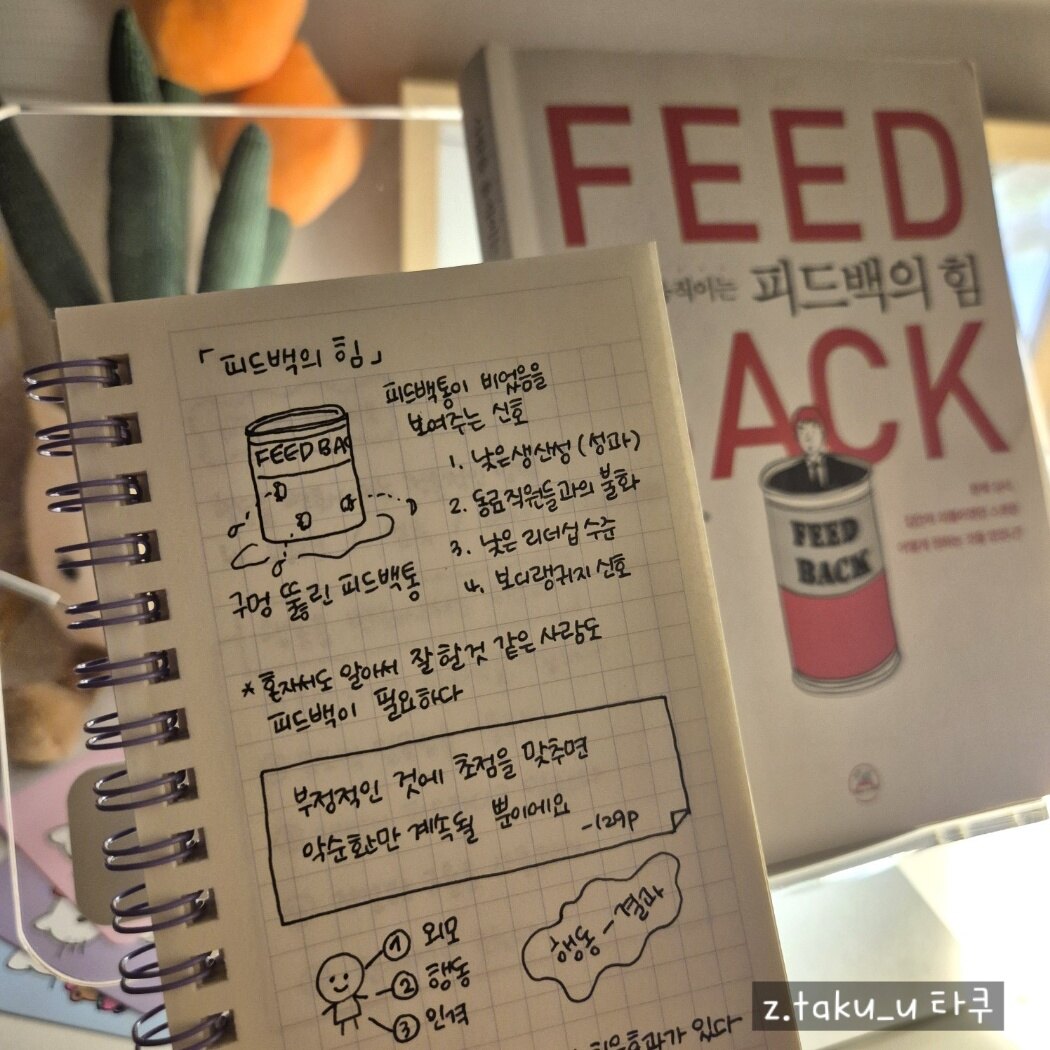 FEED
피드백의 힘
ACK
FEED
BACK
「피드백의 힘」
FEED BAC
구멍 뚫린 피드백통
피드백통이 비었음을
보여주는 신호
1. 낮은생산성 (성과)
2. 동료직원들과의 불화
3. 낮은 리더십 수준
4. 보디랭귀지 신호
* 혼자서도 알아서 잘 할 것 같은 사람도
피드백이 필요하다
부정적인 것에 초점을 맞추면
악순환만 계속될 뿐이에요
-129p
① 외모
② 행동
③ 인격
행동 - 결과
효과가 있다
z.taku_u 타쿠